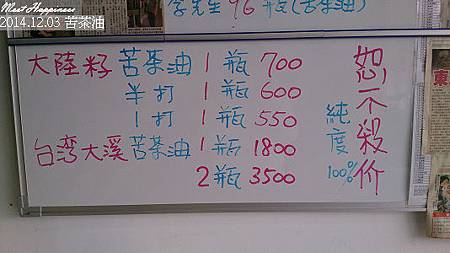 Meet Happiness
2014.12.03 苦茶油
李先生 96 瓶(苦茶油)
大陸籽 苦茶油 1 瓶 700
半打 1 瓶 600
1 打 1 瓶 550
台湾大溪 苦茶油 1 瓶 1800
2 瓶 3500
純度100%
恕不殺价